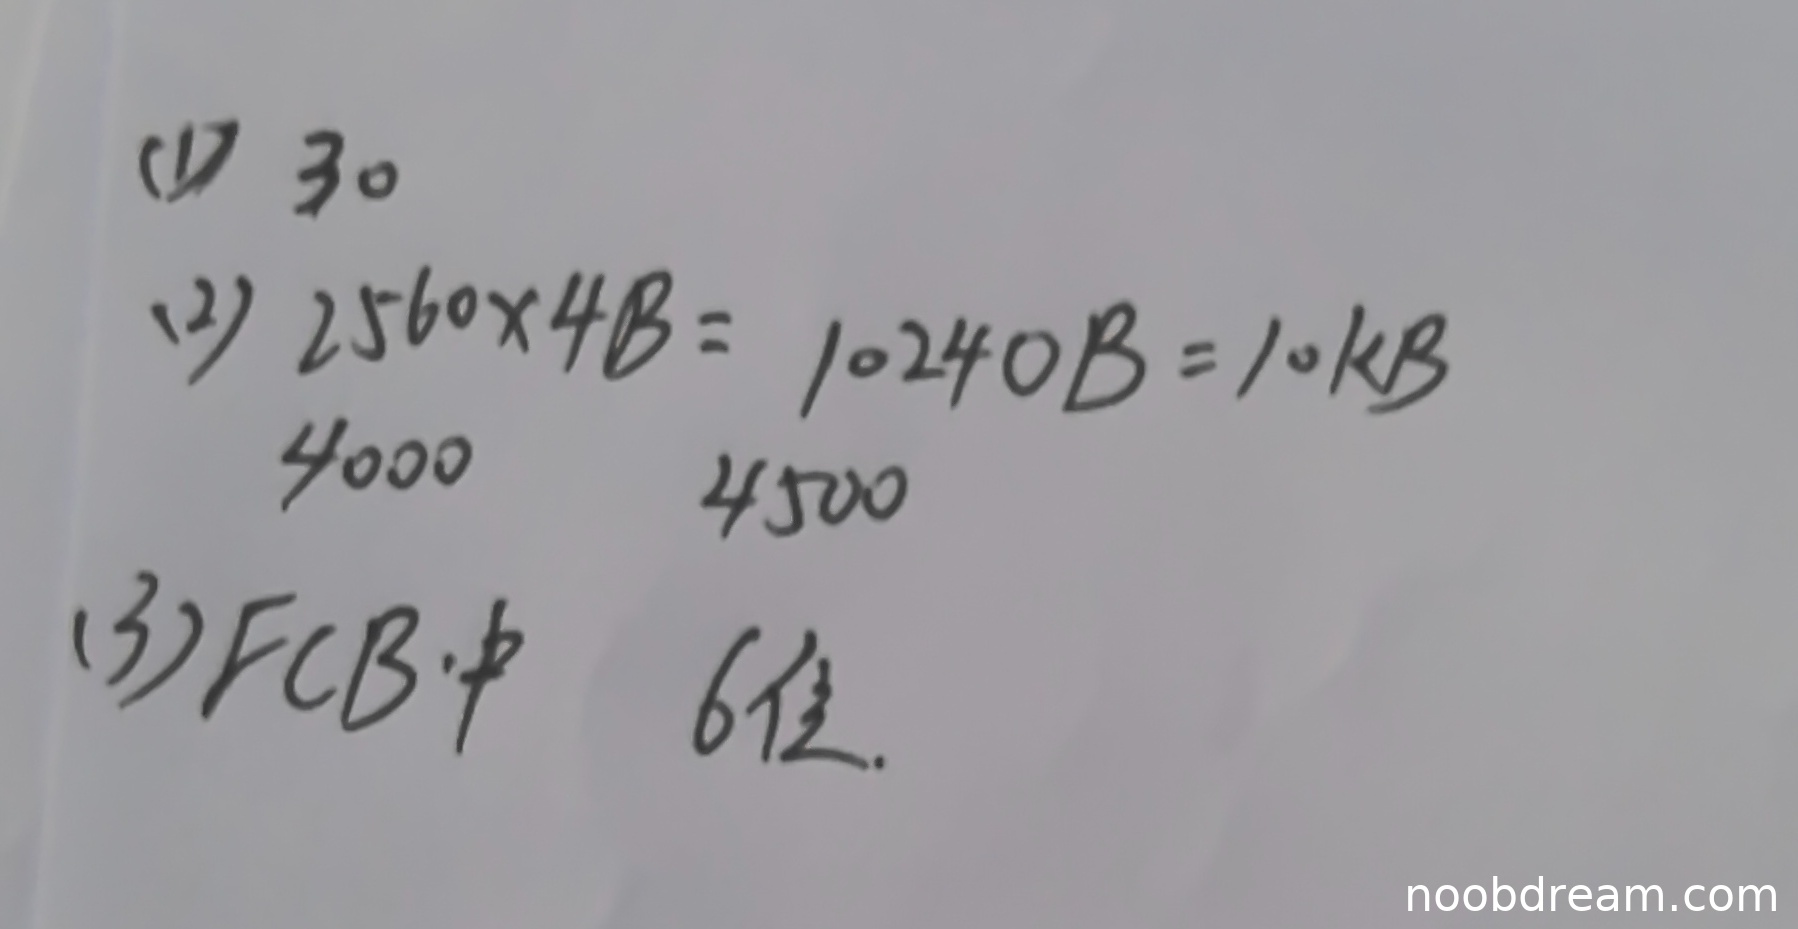 (1) 30
(2) 2560×4B = 10240B = 10KB
4000 4500
(3) FCB中 6位.
noobdream.com